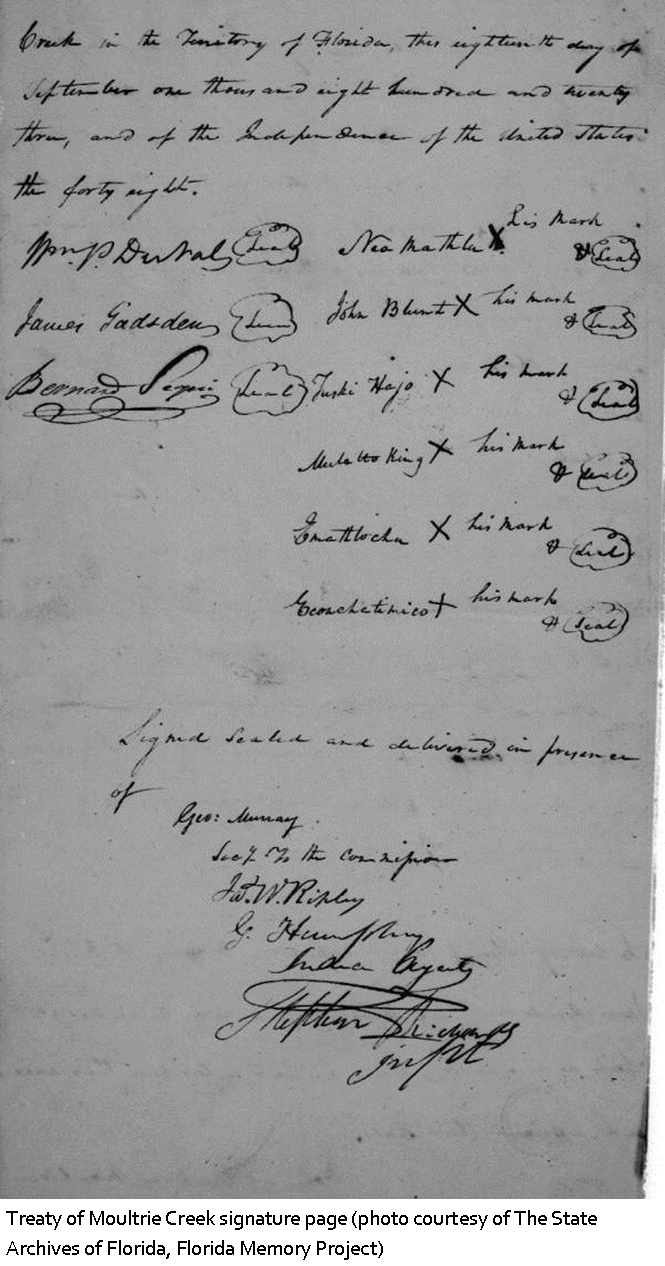 Creek in the Territory of Florida, this eighteenth day of
September one thousand eight hundred and twenty
three, and of the Independence of the United States
the forty eight.
Wm. P. DuVal Seal Nea Mathla X his mark & Seal
James Gadsden Seal John Blunt X his mark & Seal
Bernard Segui Seal Tuski Hajo X his mark & Seal
Mulatto King X his mark & Seal
Emathlocha X his mark & Seal
Econchatimico X his mark & Seal
Signed sealed and delivered in presence
of
Geo: Murray
Secy. To the commission
Jas. W. Ripley
G. Humphreys
Indian Agent
Stephen Richards
Inpt
Treaty of Moultrie Creek signature page (photo courtesy of The State
Archives of Florida, Florida Memory Project)